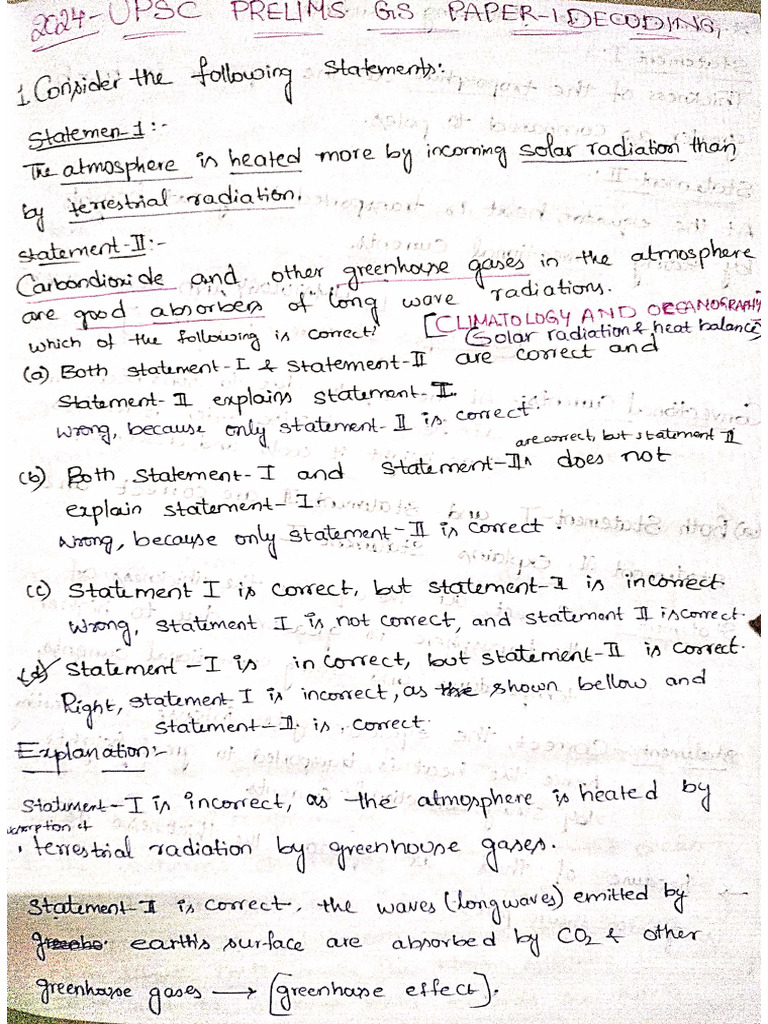 2024-UPSC PRELIMS GS PAPER-1 DECODING,
1. Consider the following statements:
Statemen-1:-
The atmosphere is heated more by incoming solar radiation than
by terrestrial radiation.
statement-II:-
Carbondioxide and other greenhouse gases in the atmosphere
are good absorbers of long wave radiations.
which of the following is correct? [CLIMATOLOGY AND OCGANOGRAPHY
(Solar radiation & heat balance)
(a) Both statement-I & statement-II are correct and
statement-II explains statement-I.
wrong, because only statement-II is correct.
are correct, but statement II
(b) Both statement-I and statement-II^ does not
explain statement-I.
wrong, because only statement-II is correct.
(c) Statement I is correct, but statement-II is incorrect.
wrong, statement I is not correct, and statement II is correct.
(d) Statement-I is incorrect, but statement-II is correct.
Right, statement I is incorrect, as the shown bellow and
statement-II is correct.
Explanation:-
Statement-I is incorrect, as the atmosphere is heated by
terrestrial radiation by greenhouse gases.
Statement-II is correct. the waves (longwaves) emitted by
earth's surface are absorbed by CO2 & other
greenhouse gases → [greenhouse effect].